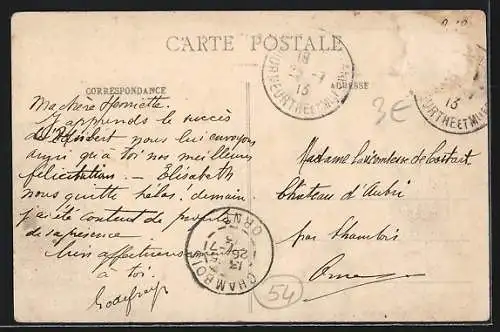 CARTE POSTALE
CORRESPONDANCE
ADRESSE
3€
Ma chère Henriette.
J'apprends le succès
d'Hubert nous lui envoyons
ainsi qu'à toi nos meilleures
félicitations. — Elisabeth
nous quitte hélas! demain
j'ai été content de
de sa présence
bien affectueusement
à toi.
Godefroy
Madame la Vicomtesse de
Château d'Aubri
par Chambois
Orne
CHAMBOIS
ORNE
MEURTHE ET M
13
54